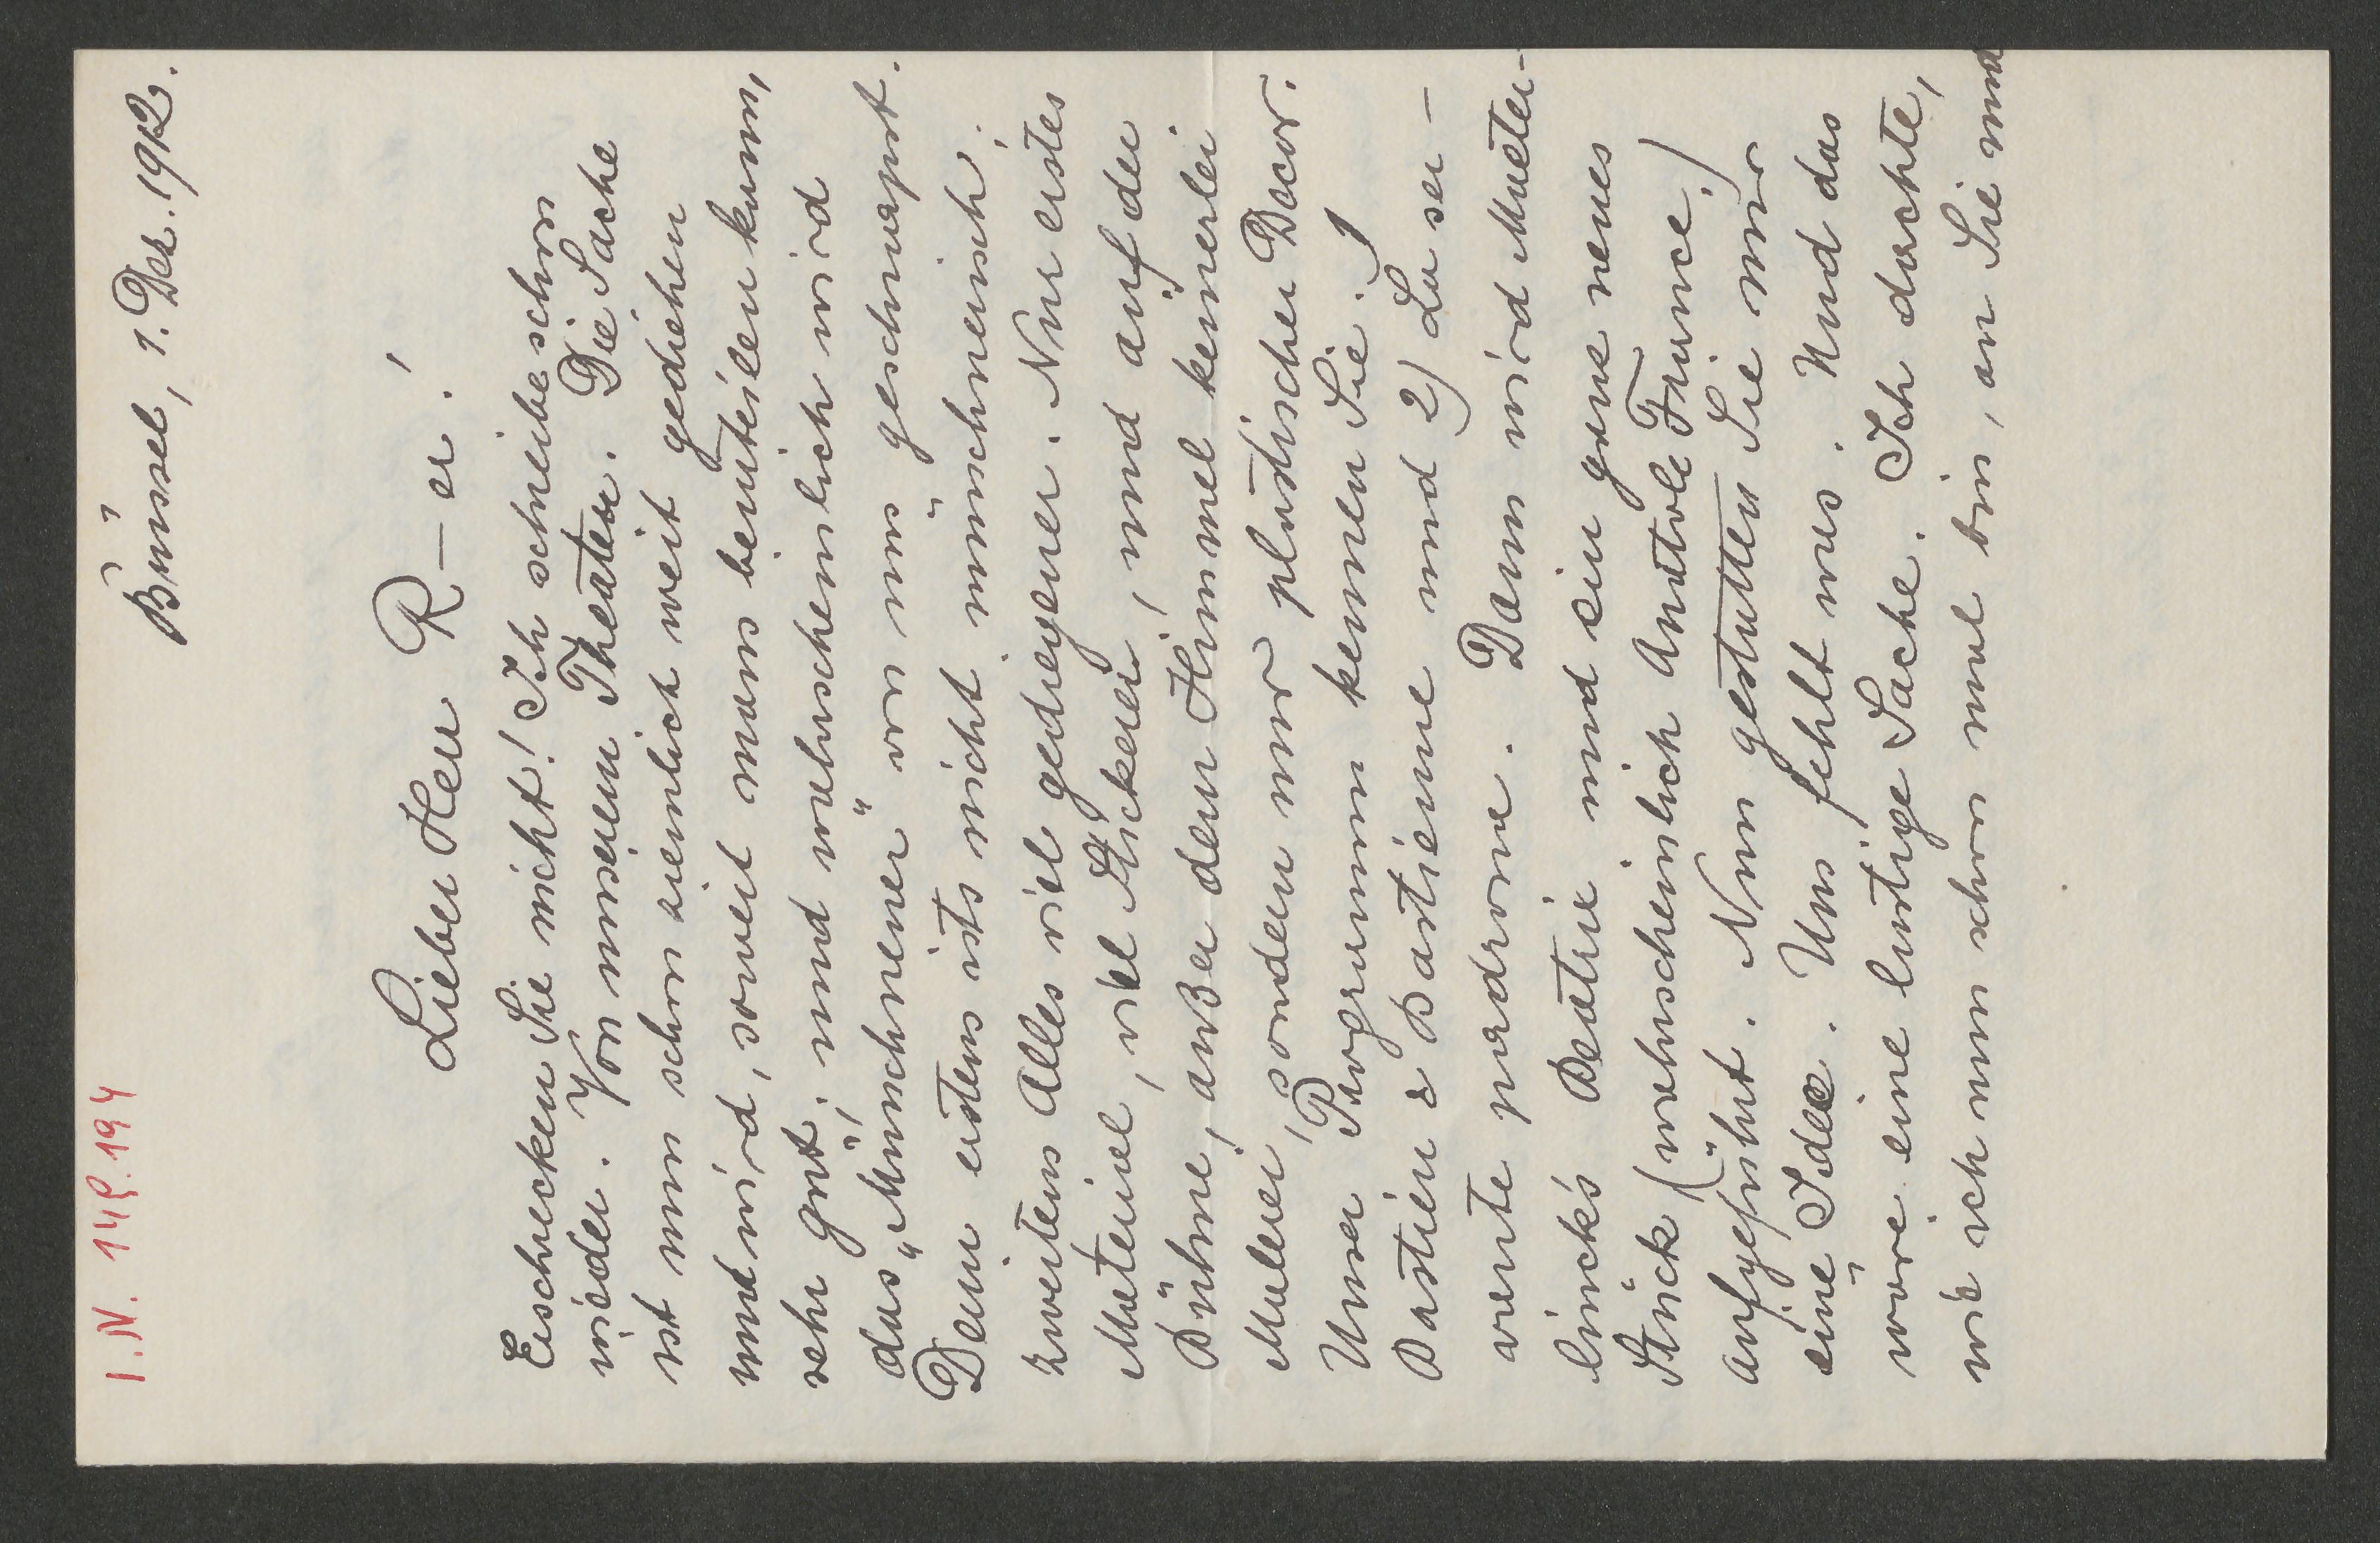 I.N. 149.194
Brüssel, 1. Dez. 1912.
Lieber Herr R–er!
Erschrecken Sie nicht! Ich schreibe schon
wieder. Von unserem Theater. Die Sache
ist nun schon ziemlich weit gediehen
und wird, soweit mans beurteilen kann,
sehr gut; und wahrscheinlich wird
das „Münchnener“ von uns geschnappt.
Denn erstens ists nicht münchnerisch,
zweitens Alles viel gediegener. Nur echtes
Material, viel Stickerei, und auf der
Bühne, außer dem Himmel keinerlei
Malerei, sondern nur plastischer Decor.
Unser Programm kennen Sie: 1)
Bastien & Bastienne und 2) La ser-
vante padrone. Dann wird Maeter-
linck's Beatrix und ein ganz neues
Stück (wahrscheinlich Anatole France!)
aufgeführt. Nun gestatten Sie mir
eine Idee. Uns fehlt was. Und das
wäre eine lustige Sache. Ich dachte,
wie ich nun schon mal bin, an Sie und